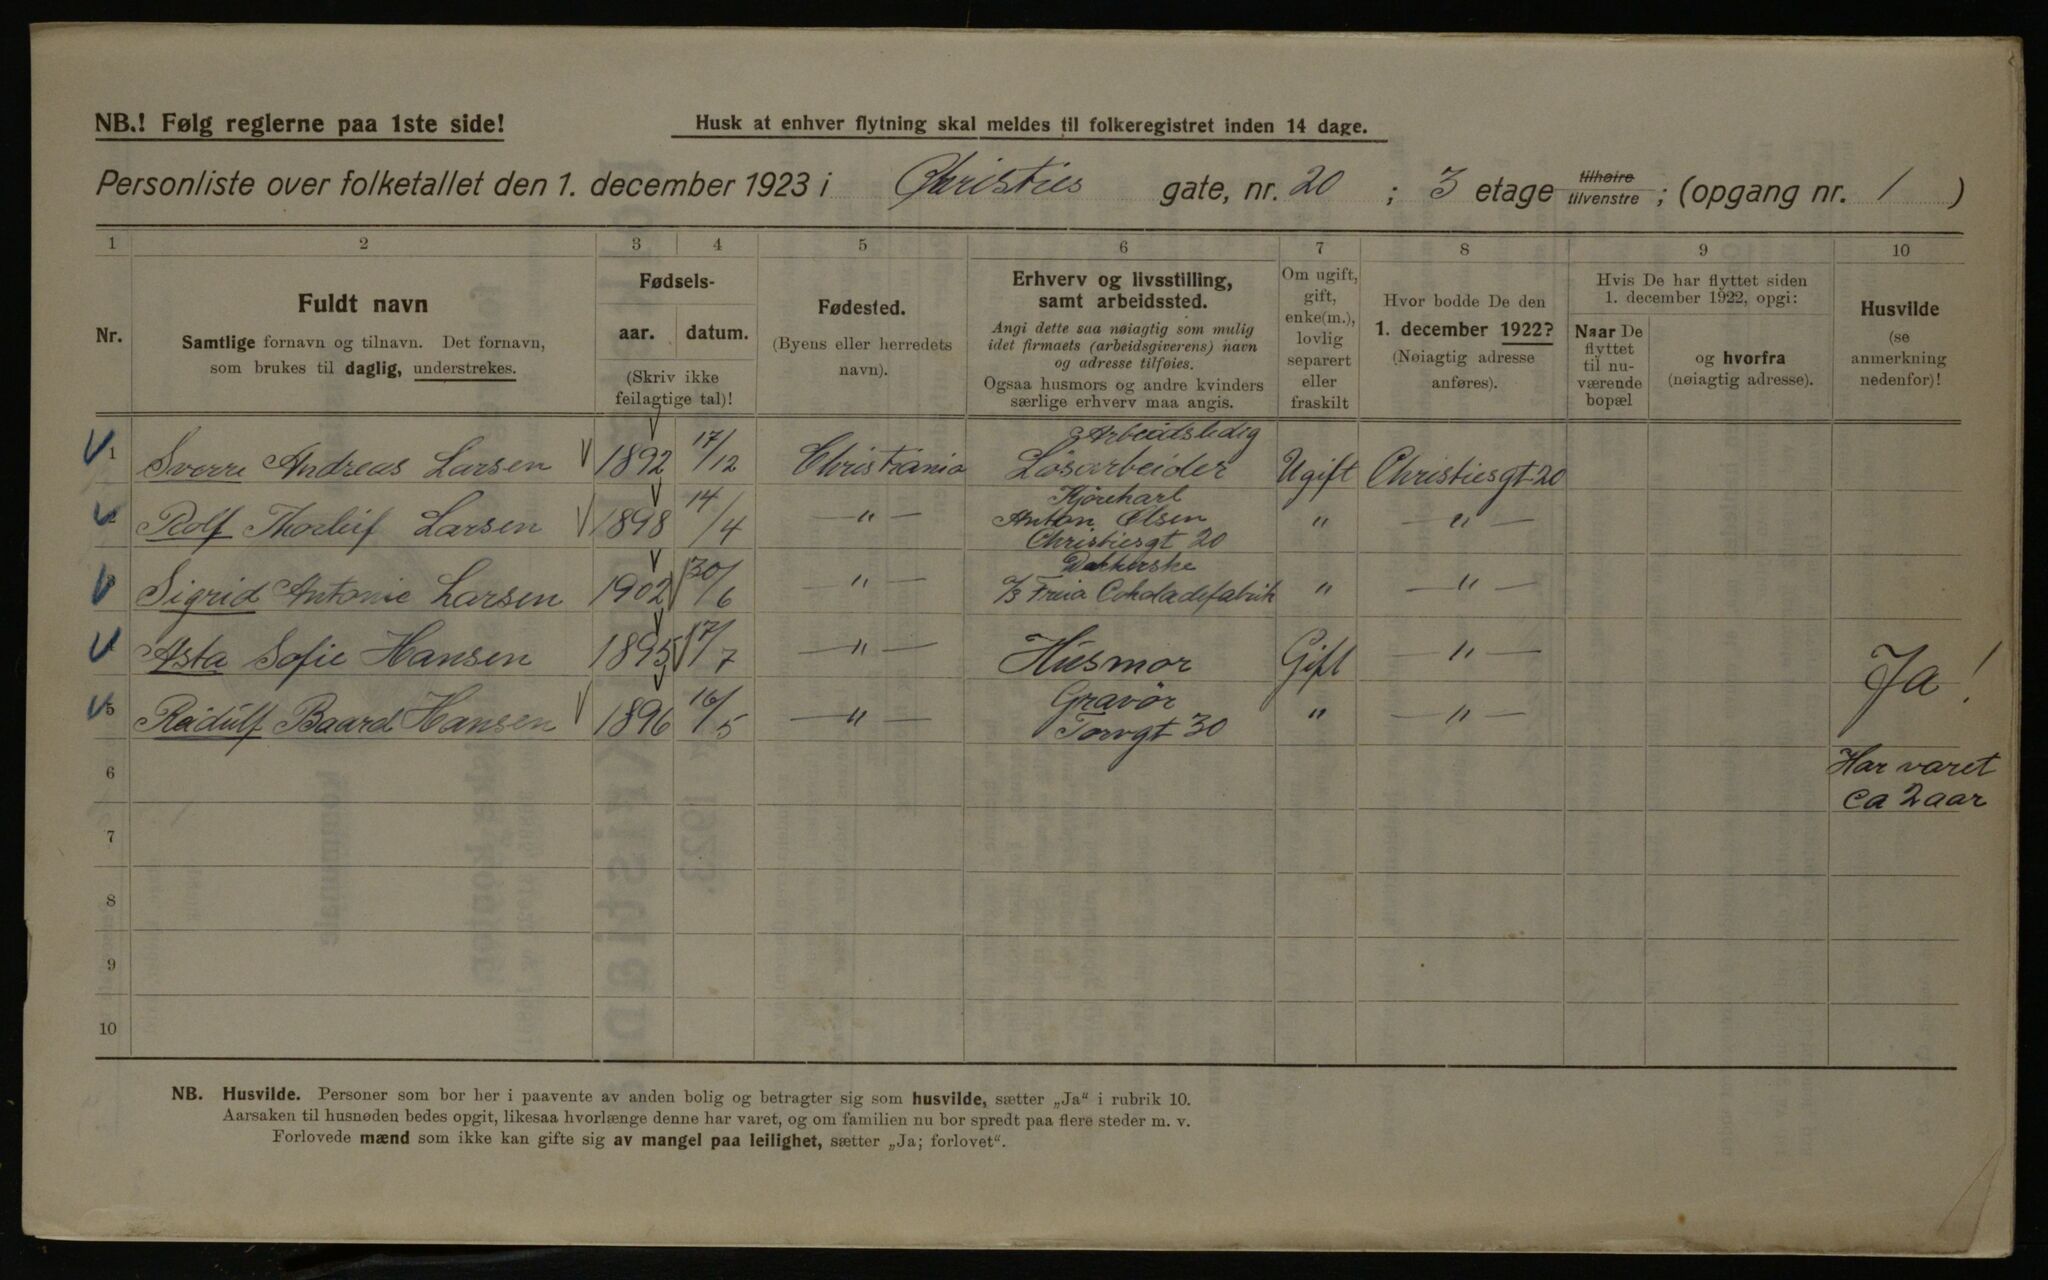 NB.! Følg reglerne paa 1ste side!
Husk at enhver flytning skal meldes til folkeregistret inden 14 dage.
Personliste over folketallet den 1. december 1923 i Christies gate, nr. 20 ; 3 etage tilhøire tilvenstre ; (opgang nr. 1 )
1 2 3 4 5 6 7 8 9 10
Nr.
Fuldt navn
Samtlige fornavn og tilnavn. Det fornavn,
som brukes til daglig, understrekes.
Fødsels-
aar. datum.
(Skriv ikke
feilagtige tal)!
Fødested.
(Byens eller herredets
navn).
Erhverv og livsstilling,
samt arbeidssted.
Angi dette saa nøiagtig som mulig
idet firmaets (arbeidsgiverens) navn
og adresse tilføies.
Ogsaa husmors og andre kvinders
særlige erhverv maa angis.
Om ugift,
gift,
enke(m.),
lovlig
separert
eller
fraskilt
Hvor bodde De den
1. december 1922?
(Nøiagtig adresse
anføres).
Hvis De har flyttet siden
1. december 1922, opgi:
Naar De
flyttet
til nu-
værende
bopæl
og hvorfra
(nøiagtig adresse).
Husvilde
(se
anmerkning
nedenfor)!
Arbeidsledig
1 Sverre Andreas Larsen 1892 17/12 Christiania Løsarbeider Ugift Christiesgt. 20
Kjørekarl
2 Rolf Thorleif Larsen 1898 14/4 — " — Anton Olsen " — " —
Christiesgt 20
3 Sigrid Antonie Larsen 1902 30/6 — " — A/S Freia Cokoladefabrik " — " —
4 Asta Sofie Hansen 1895 17/7 — " — Husmor Gift — " — Ja!
Gravør
5 Rådulf Baard Hansen 1896 16/5 — " — Torvgt 30 " — " —
6 Har varet
ca 2 aar
7
8
9
10
NB. Husvilde. Personer som bor her i paavente av anden bolig og betragter sig som husvilde, sætter „Ja" i rubrik 10.
Aarsaken til husnøden bedes opgit, likesaa hvorlænge denne har varet, og om familien nu bor spredt paa flere steder m. v.
Forlovede mænd som ikke kan gifte sig av mangel paa leilighet, sætter „Ja; forlovet".